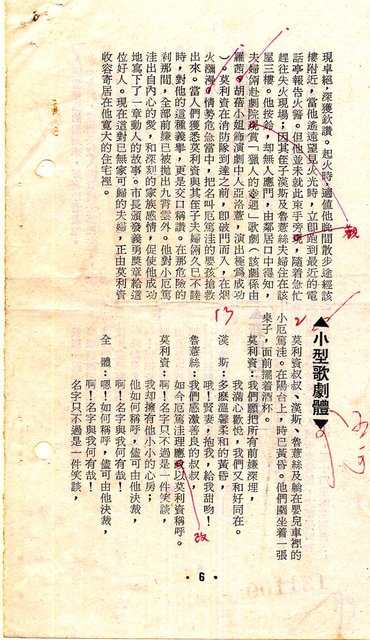 現卓絕，深獲欽讚。起火時，適值他晚間散步途經該
樓附近，當他遙遠望見火光時，立即跑到最近的電
話亭報告火警。但他並未就此束手旁現，隨着急忙
趕往失火現場；因其侄子漢斯及魯薏絲夫婦住在該
屋三樓。他按鈴，却無人應門，由鄰居口中得知，
夫婦倆赴劇院觀賞「獵人的幸遇」歌劇（該劇係由
羅茜・胡蓓小姐飾演劇中人亞洛薏，演出極爲成功
）。莫利資在消防隊到達之前，卽破門而入，在烟
火瀰漫，情勢危急當中，把名叫厄篤洼的嬰孩搶救
出來。當人們獲悉莫利資與其侄子夫婦倆久已不睦
時，對他的這種義擧，更是交口稱讚。在那危險的
刹那間，全部前嫌已被拋出九霄雲外。他對小厄篤
洼出自內心的愛，和深刻的家族感情，促使他成功
地寫下了一章動人的故事。市長頒發義勇奬章給這
位好人。現在這對已無家可歸的夫婦，正由莫利資
收容寄居在他寬大的住宅裡。
觀
▲小型歌劇體▼
2
13
莫利資叔叔、漢斯、魯薏絲及躺在嬰兒車裡的
小厄篤洼。在陽台上，時已黃昏。他們圍坐着一張
桌子，面前擺着酒杯。
莫利資：我們願把所有前嫌深埋，
我滿心歡悅，我們又和好同在。
漢　斯：多麼溫馨柔和的黃昏，
哦！賢妻，抱我，給我甜吻！
魯薏絲：我們感激善良的叔叔，
如今厄篤洼理應我以莫利資稱呼。
改
莫利資：啊！名字只不過是一件笑談，
我却擁有他小小的心房；
他如何稱呼，儘可由他決裁，
啊！名字與我何有哉！
全　體：嗯！如何稱呼，儘可由他決裁，
啊！名字與我何有哉！
名字只不過是一件笑談，
・6・